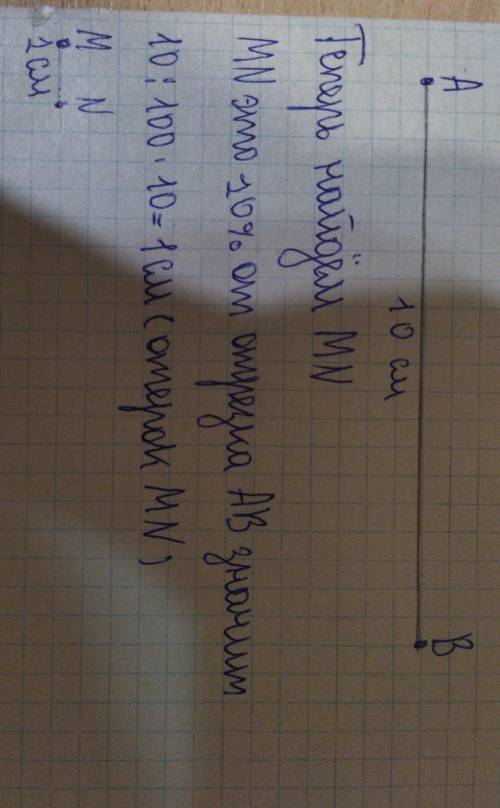 A B
10 см
Теперь найдём MN
MN это 10% от отрезка AB значит
10 : 100 · 10 = 1 см ( отерок MN )
M N
1 см